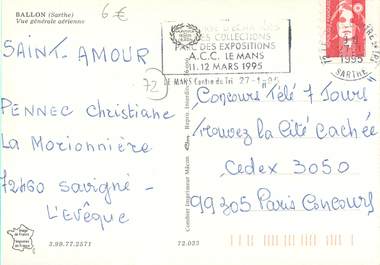 BALLON (Sarthe)
Vue générale aérienne
6€
DES COLLECTIONS
PARC DES EXPOSITIONS
A.C.C. LE MANS
11.12 MARS 1995
LE MANS Centre de Tri 27-1-95
1995
SARTHE
72
SAINT-AMOUR
PENNEC Christiane
La Morionnière
72460 Savigné-
L'Evêque
Concours Télé 7 Jours
Trouvez la Cité Cachée
Cedex 3050
99305 Paris Concours
Combier Imprimeur Mâcon
3.99.77.2571
72.023